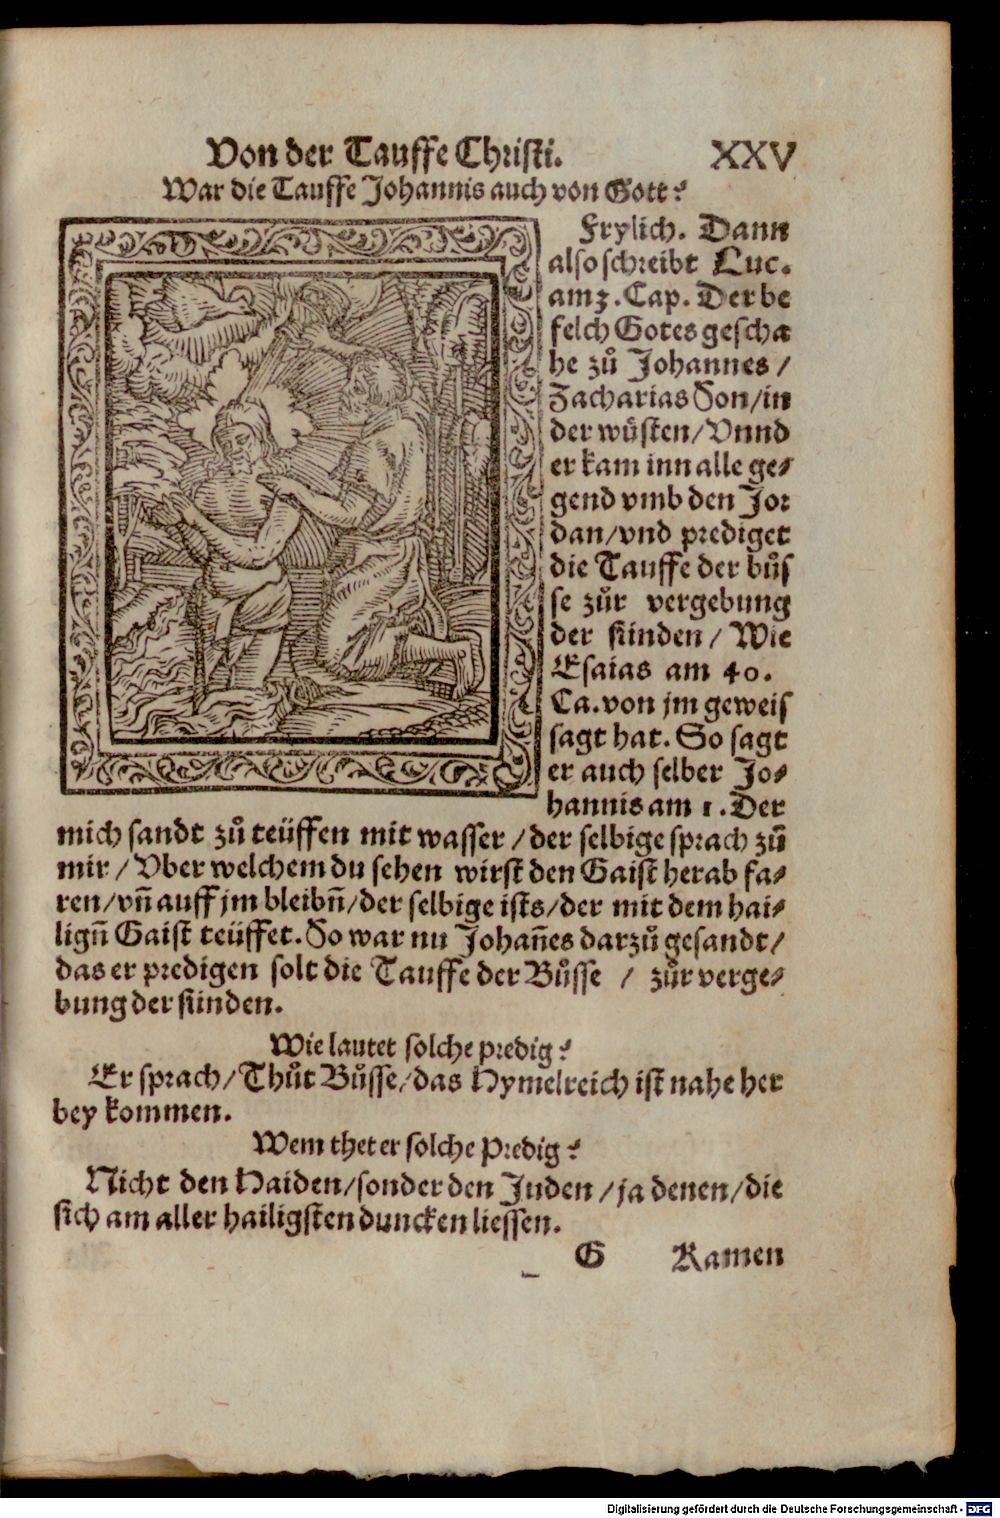 Von der Tauffe Christi. XXV
War die Tauffe Johannis auch von Gott?
Frylich. Dann
also schreibt Luc.
am 3. Cap. Der be
felch Gotes gescha
he zů Johannes /
Zacharias Son / in
der wůsten / Vnnd
er kam inn alle ge-
gend vmb den Jor
dan / vnd prediget
die Tauffe der bůs
se zůr vergebung
der sünden / Wie
Esaias am 40.
Ca. von jm geweis
sagt hat. So sagt
er auch selber Jo-
hannis am 1. Der
mich sandt zů teüffen mit wasser / der selbige sprach zů
mir / Vber welchem du sehen wirst den Gaist herab fa-
ren / vñ auff jm bleibñ / der selbige ists / der mit dem hai-
ligñ Gaist teüffet. So war nu Johañes darzů gesandt /
das er predigen solt die Tauffe der Bůsse / zůr verge-
bung der sünden.
Wie lautet solche predig?
Er sprach / Thůt Bůsse / das Hymelreich ist nahe her
bey kommen.
Wem thet er solche Predig?
Nicht den Haiden / sonder den Juden / ja denen / die
sich am aller hailigsten duncken liessen.
G Kamen
Digitalisierung gefördert durch die Deutsche Forschungsgemeinschaft - DFG